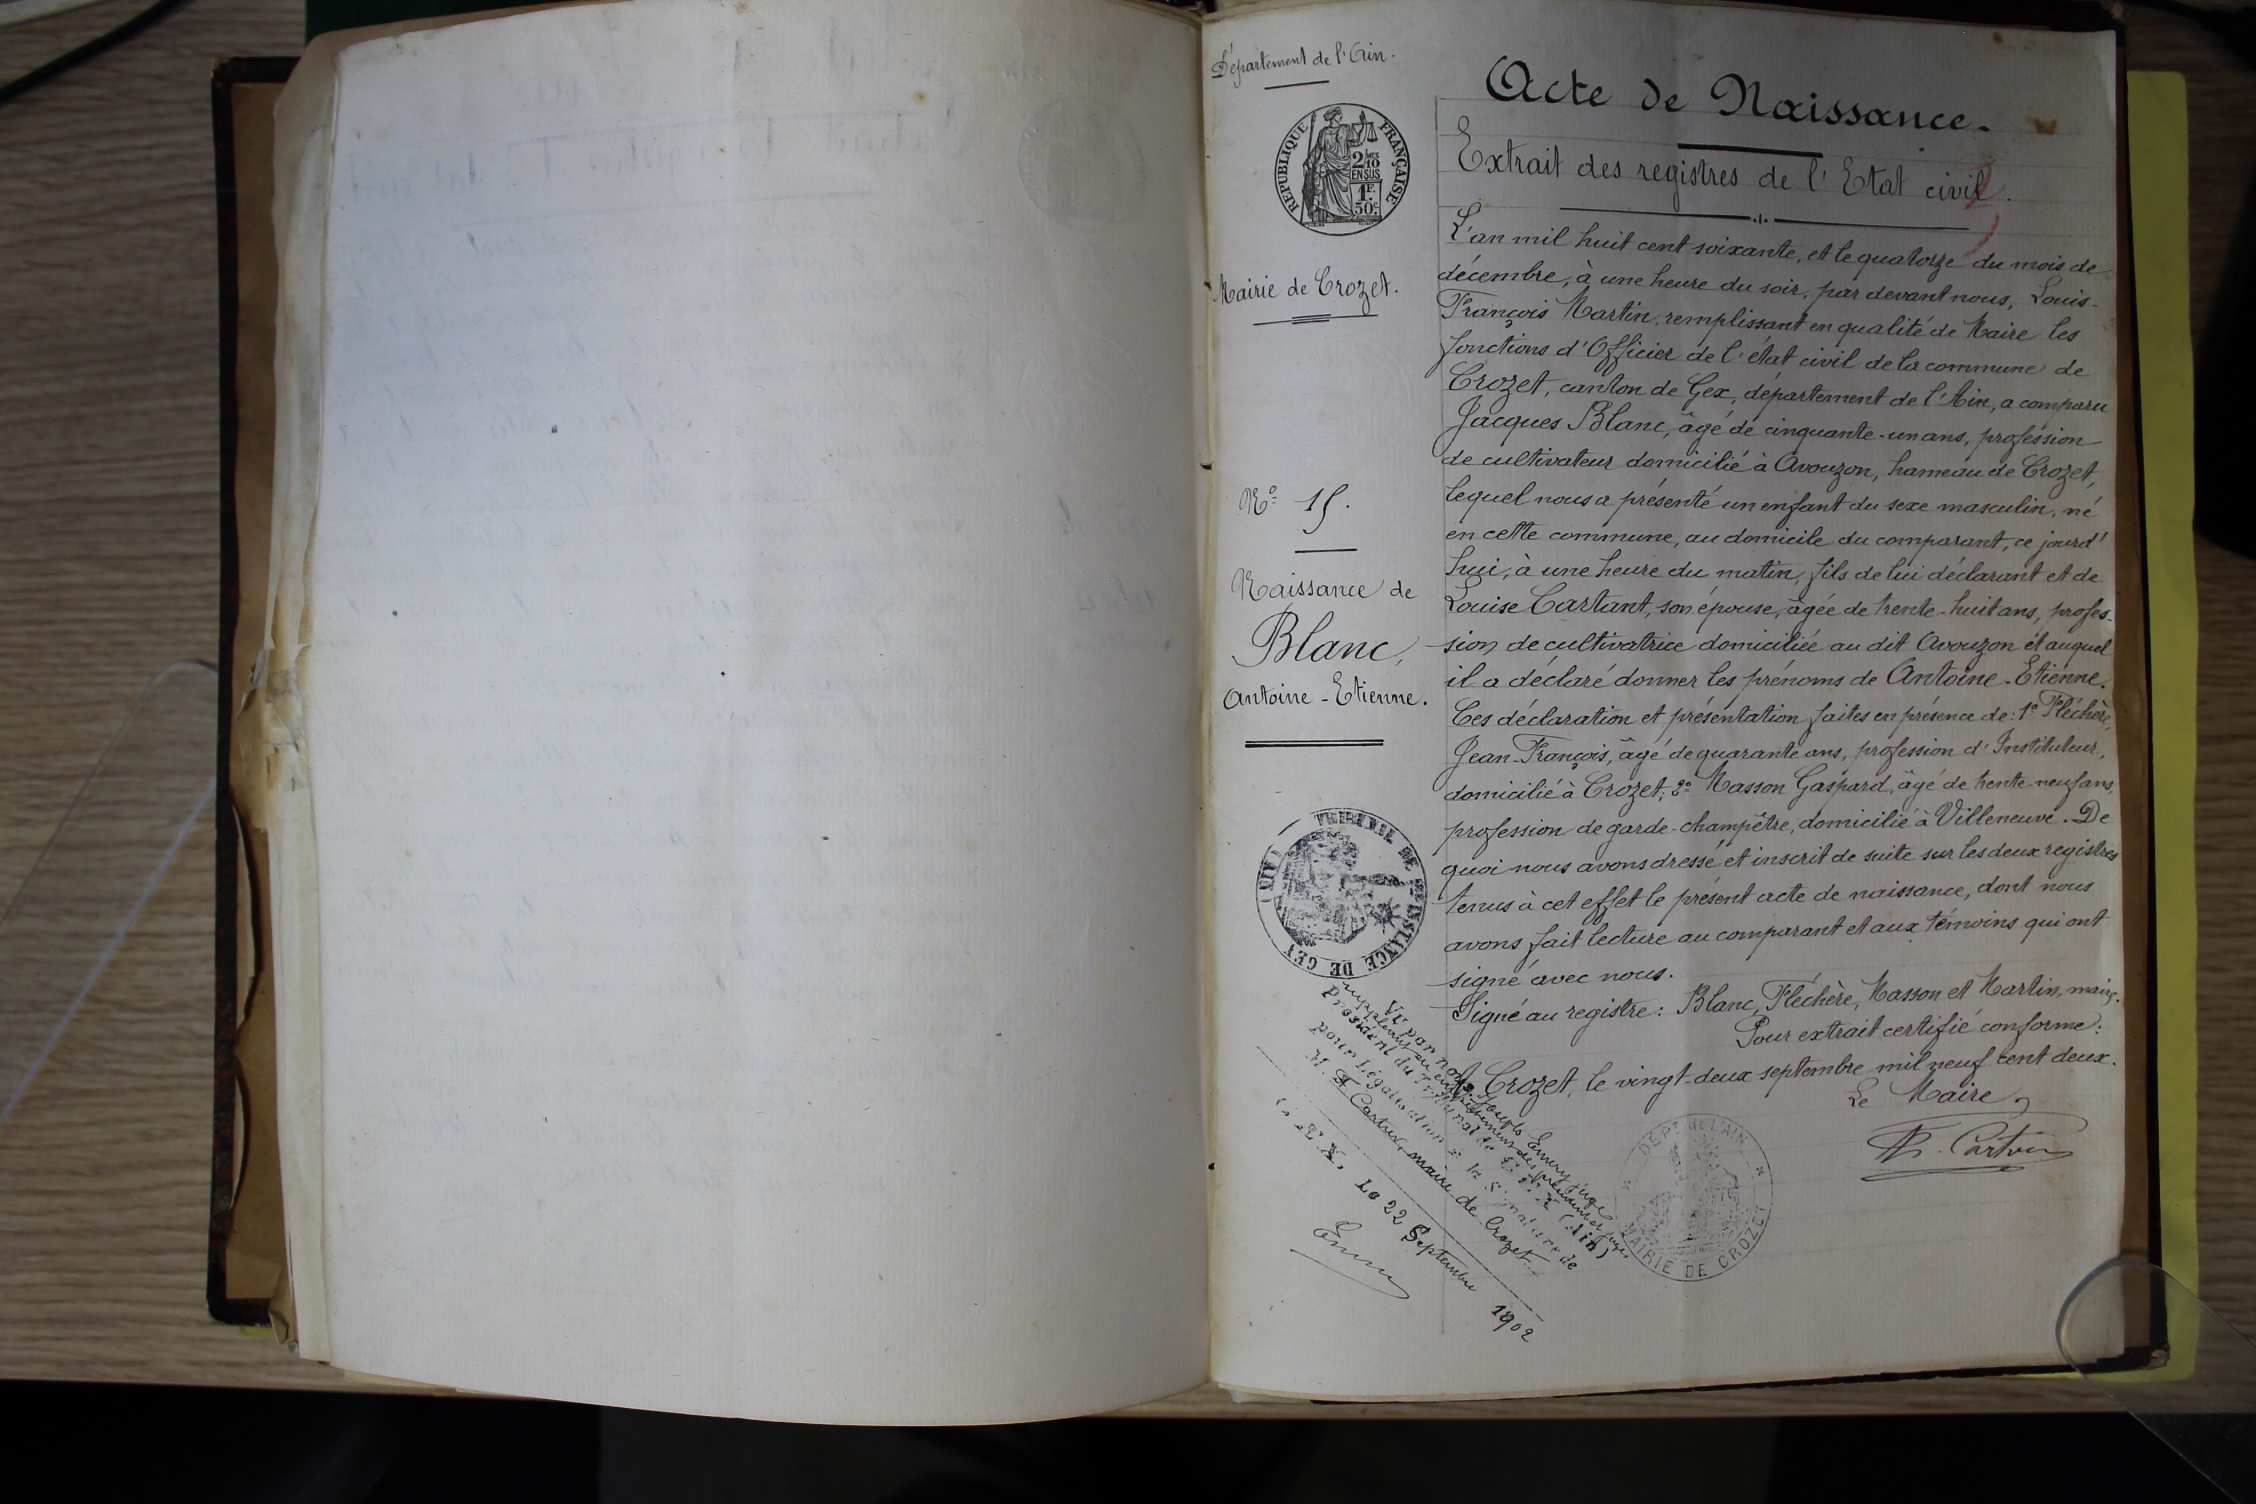 Département de l'Ain.
RÉPUBLIQUE FRANÇAISE
2/10 EN SUS
1F. 50c
Mairie de Crozet.
No 15.
Naissance de
Blanc,
Antoine-Etienne.
TRIBUNAL DE 1re INSTANCE DE GEX (AIN)
Acte de Naissance.
Extrait des registres de l'Etat civil.
L'an mil huit cent soixante, et le quatorze du mois de
décembre, à une heure du soir, par devant nous, Louis-
François Martin, remplissant en qualité de Maire les
fonctions d'Officier de l'état civil de la commune de
Crozet, canton de Gex, département de l'Ain, a comparu
Jacques Blanc, âgé de cinquante-un ans, profession
de cultivateur domicilié à Avouzon, hameau de Crozet,
lequel nous a présenté un enfant du sexe masculin, né
en cette commune, au domicile du comparant, ce jourd'
hui, à une heure du matin, fils de lui déclarant et de
Louise Cartant, son épouse, âgée de trente-huit ans, profes-
sion de cultivatrice domiciliée au dit Avouzon et auquel
il a déclaré donner les prénoms de Antoine-Etienne.
Ces déclaration et présentation faites en présence de: 1o Fléchère,
Jean-François, âgé de quarante ans, profession d'Instituteur,
domicilié à Crozet; 2o Masson Gaspard, âgé de trente-neuf ans,
profession de garde-champêtre, domicilié à Villeneuve. De
quoi nous avons dressé et inscrit de suite sur les deux registres
tenus à cet effet le présent acte de naissance, dont nous
avons fait lecture au comparant et aux témoins qui ont
signé avec nous.
Signé au registre: Blanc, Fléchère, Masson et Martin, maire.
Pour extrait certifié conforme:
A Crozet, le vingt-deux septembre mil neuf cent deux.
Le Maire,
DEPT DE L'AIN
MAIRIE DE CROZET
Vu par nous Joseph Emery juge
suppléant au empêchement des premiers juges
Président du Tribunal de GEX (Ain)
pour Légalisation de la signature de
M. maire de Crozet.
GEX, le 22 Septembre 1902
Emery